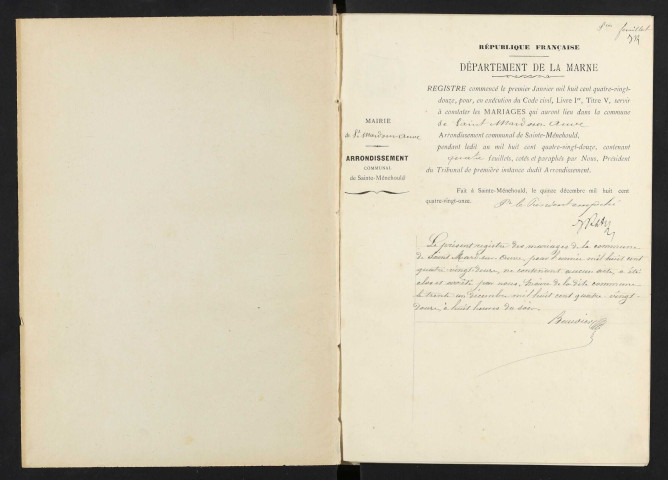 1er feuillet
RÉPUBLIQUE FRANÇAISE
DÉPARTEMENT DE LA MARNE
REGISTRE commencé le premier Janvier mil huit cent quatre-vingt-
douze, pour, en exécution du Code civil, Livre Ier, Titre V, servir
à constater les MARIAGES qui auront lieu dans la commune
de Saint Mard sur Auve
Arrondissement communal de Sainte-Ménehould,
pendant ledit an mil huit cent quatre-vingt-douze, contenant
quatre feuillets, cotés et paraphés par Nous, Président
du Tribunal de première instance dudit Arrondissement.
Fait à Sainte-Ménehould, le quinze décembre mil huit cent
quatre-vingt-onze.
Pr le Président empêché
MAIRIE
de St Mard sur Auve
ARRONDISSEMENT
COMMUNAL
de Sainte-Ménehould
Le présent registre des mariages de la commune
de Saint Mard sur Auve, pour l'année mil huit cent
quatre vingt douze, ne contenant aucun acte, a été
clos et arrêté par nous, Maire de la dite commune
le trente un décembre mil huit cent quatre-vingt-
douze, à huit heures du soir.